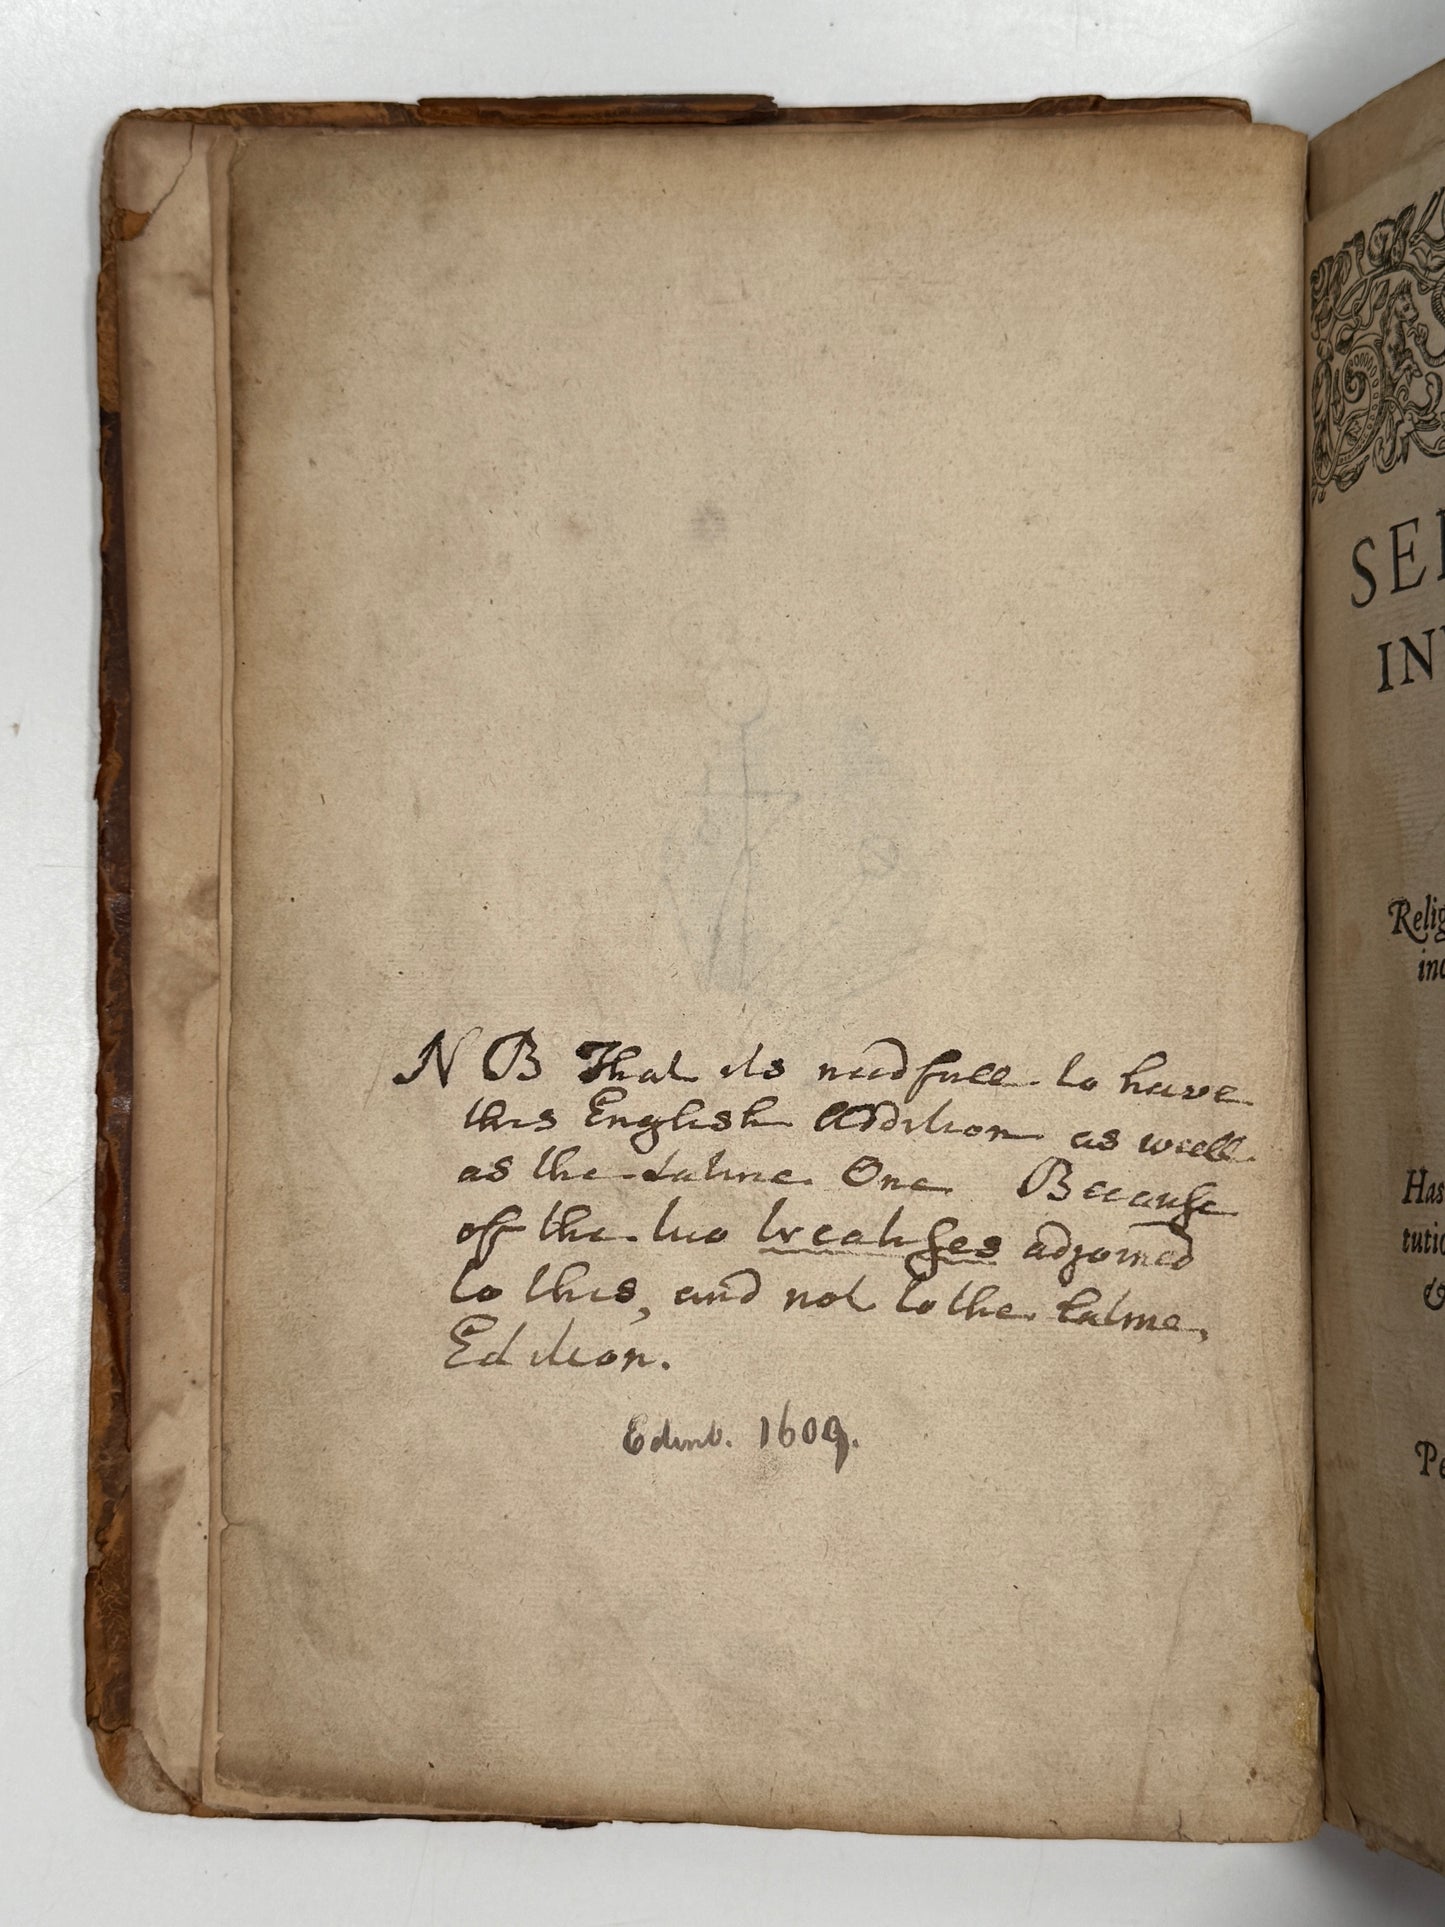 N B That its needfull to have
this English Addition as weell
as the Latine One Becaufe
off the two treatifes adjoined
to this, and not to the Latine
Edition.
Edinb. 1609.
SE
IN
Relig
inc
Has
tutio
&
Pe